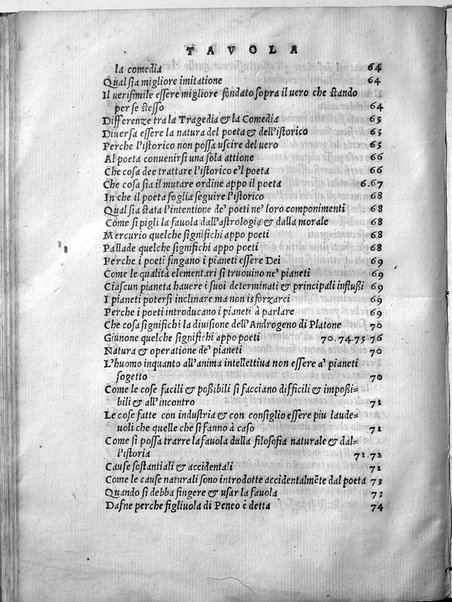 TAVOLA
la comedia 64
Qual sia migliore imitatione 64
Il uerisimile essere migliore fondato sopra il uero che stando
per se stesso 64
Differenze tra la Tragedia & la Comedia 65
Diuersa essere la natura del poeta & dell'istorico 65
Perche l'istorico non possa uscire del uero 65
Al poeta conuenirsi una sola attione 66
Che cosa dee trattare l'istorico e'l poeta 66
Che cosa sia il mutare ordine appo il poeta 6.67
In che il poeta soglia seguire l'istorico 68
Qual sia stata l'intentione de' poeti ne' loro componimenti 68
Come si pigli la fauola dall'astrologia & dalla morale 68
Mercurio quelche significhi appo poeti 68
Pallade quelche significhi appo poeti 68
Perche i poeti fingano i pianeti essere Dei 69
Come le qualità elementari si truouino ne' pianeti 69
Ciascun pianeta hauere i suoi determinati & principali influßi 69
I pianeti potersi inclinare ma non isforzarci 69
Perche i poeti introducano i pianeti à parlare 69
Che cosa significhi la diuisione dell'Androgeno di Platone 70
Giunone quelche significhi appo poeti 70.74.75 76
Natura & operatione de' pianeti 70
L'huomo inquanto all'anima intellettiua non essere a' pianeti
sogetto 70
Come le cose facili & poßibili si facciano difficili & impoßi-
bili & all'incontro 71
Le cose fatte con industria & con consiglio essere piu laude-
uoli che quelle che si fanno à caso 71
Come si possa trarre la fauola dalla filosofia naturale & dal-
l'istoria 71.72
Cause sostantiali & accidentali 71
Come le cause naturali sono introdotte accidentalmẽte dal poeta 73
Quando si debba fingere & usar la fauola 73
Dafne perche figliuola di Peneo è detta 74